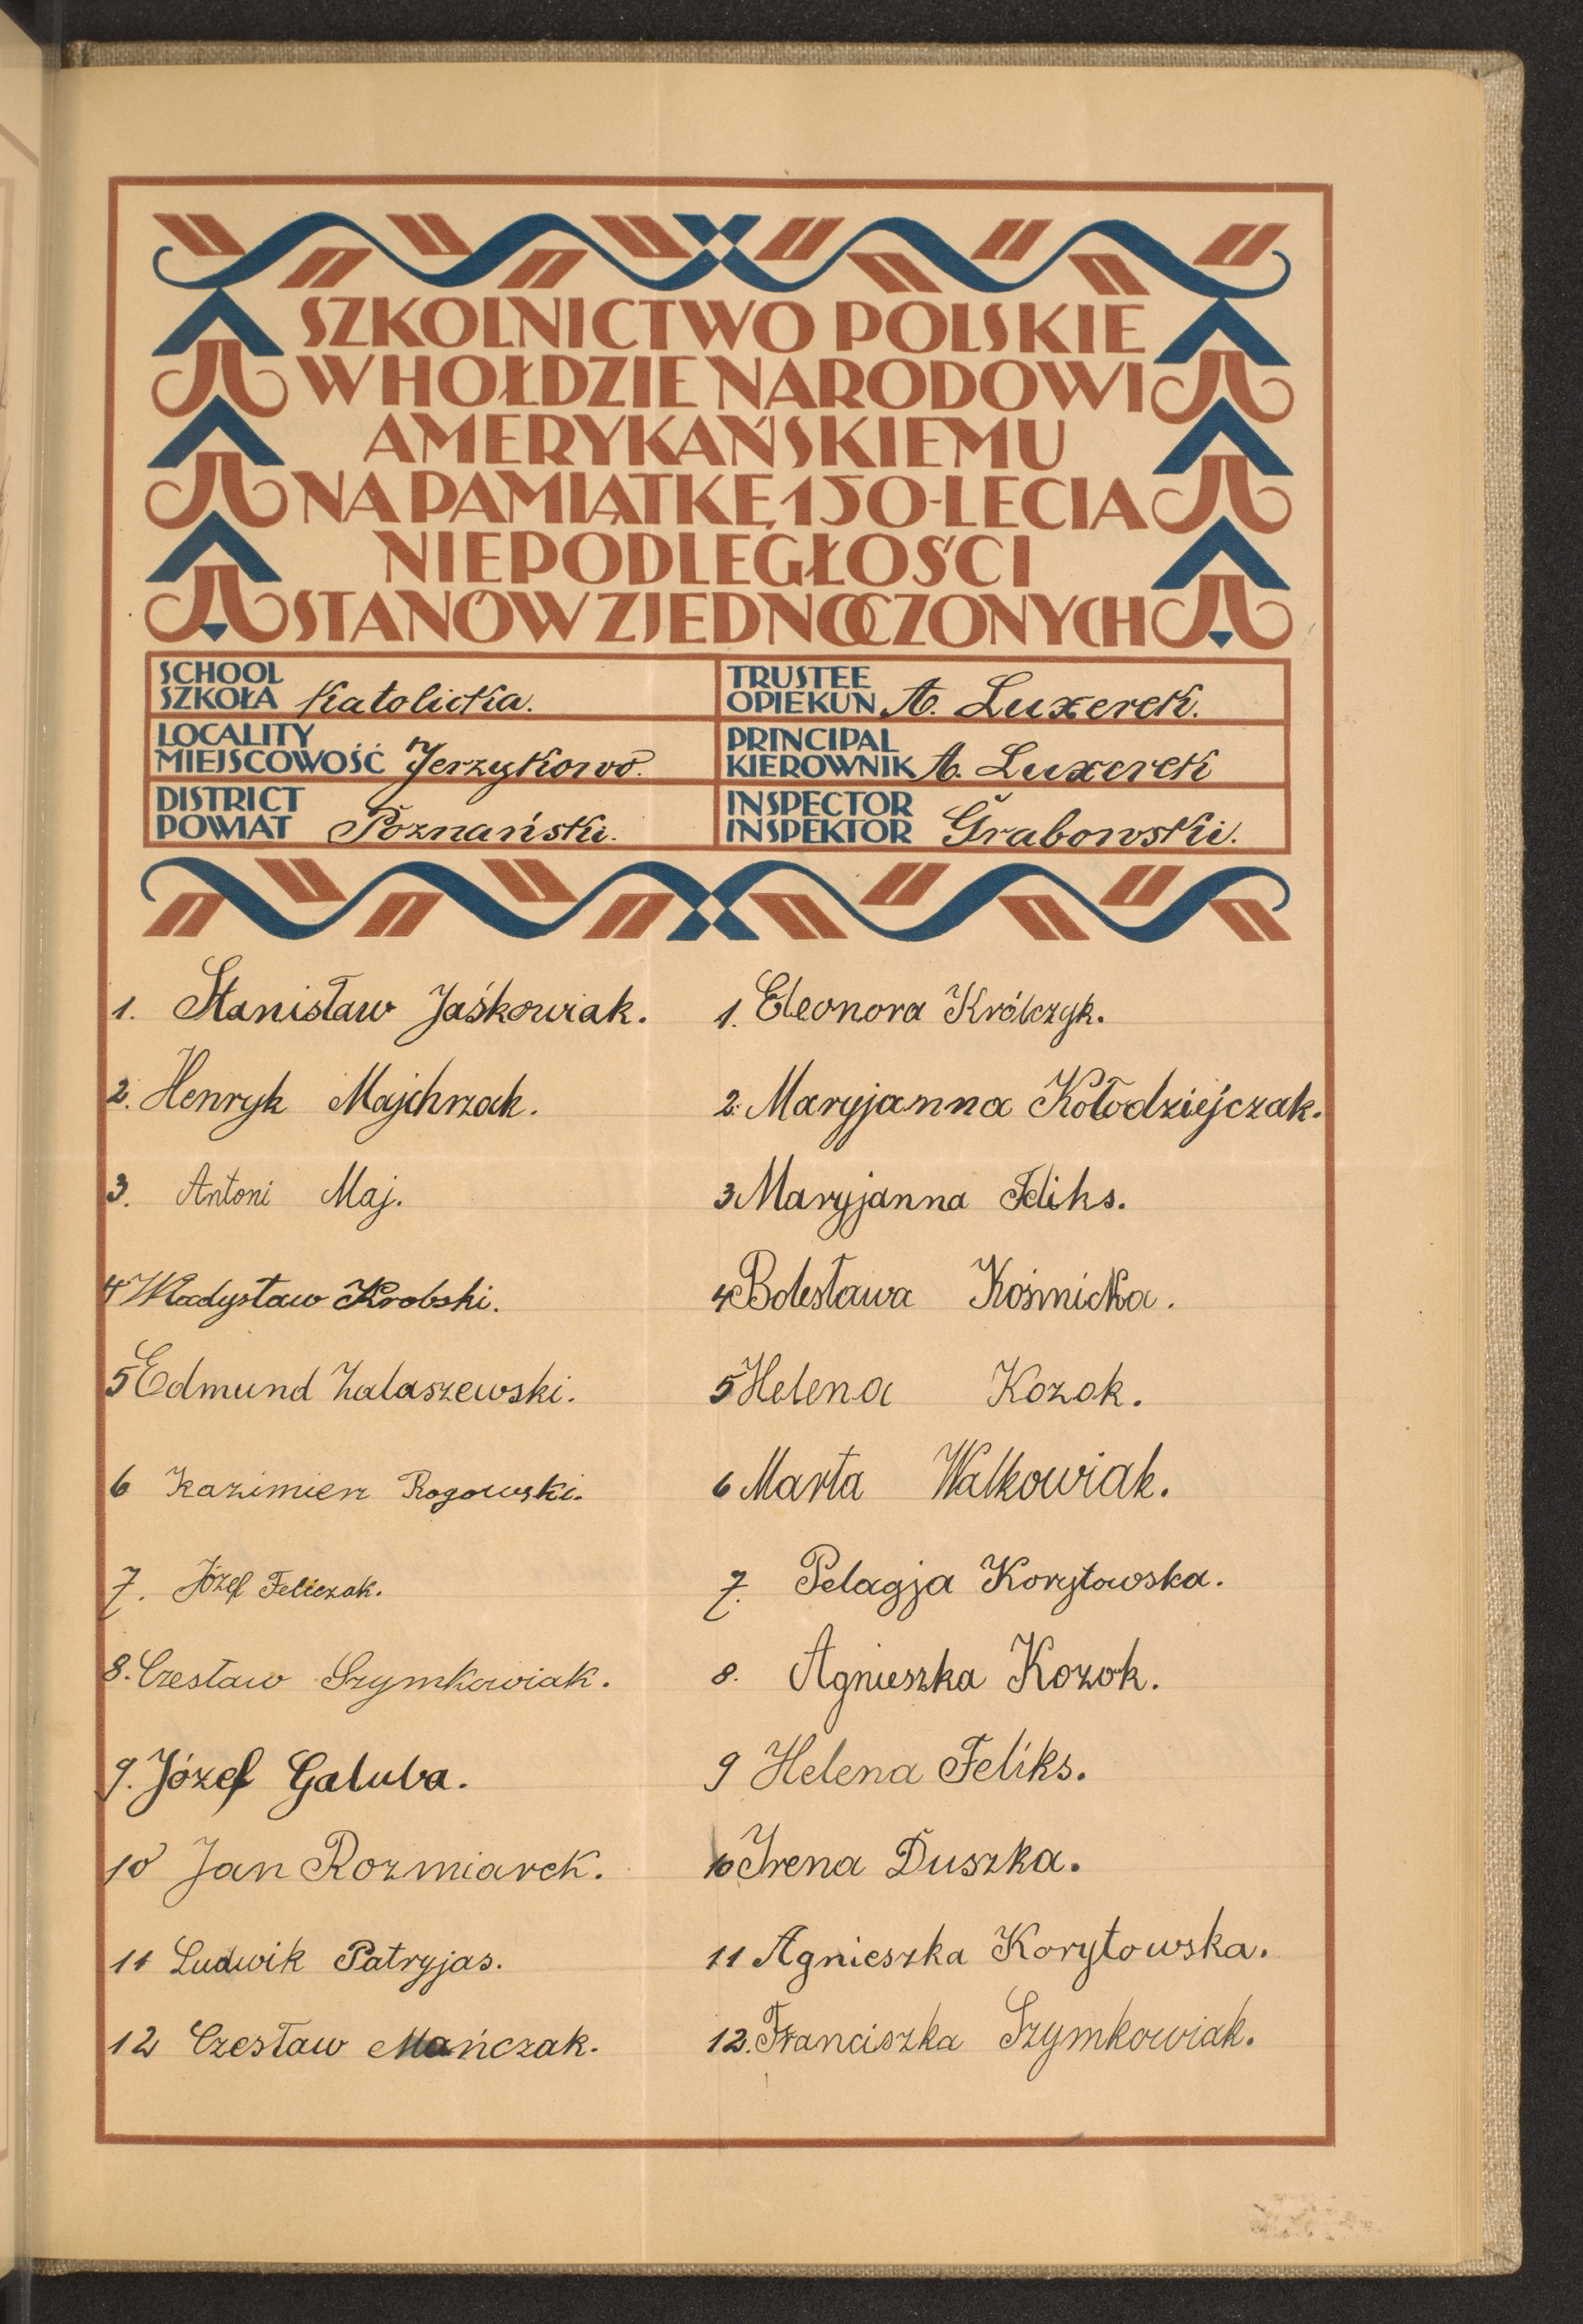 SZKOLNICTWO POLSKIE
W HOŁDZIE NARODOWI
AMERYKAŃSKIEMU
NA PAMIĄTKĘ 150-LECIA
NIEPODLEGŁOŚCI
STANÓW ZJEDNOCZONYCH
SCHOOL
SZKOŁA Katolicka.
LOCALITY
MIEJSCOWOŚĆ Jerzykowo.
DISTRICT
POWIAT Poznański.
TRUSTEE
OPIEKUN A. Luxerek.
PRINCIPAL
KIEROWNIK A. Luxerek
INSPECTOR
INSPEKTOR Grabowski.
1. Stanisław Jaśkowiak.
2. Henryk Majchrzak.
3. Antoni Maj.
4 Władysław Krobski.
5 Edmund Zalaszewski.
6 Kazimierz Rogowski.
7. Józef Feliczak.
8. Czesław Szymkowiak.
9. Józef Galuba.
10 Jan Rozmiarek.
11 Ludwik Patryjas.
12 Czesław Mańczak.
1. Eleonora Królczyk.
2. Maryjanna Kołodziejczak.
3 Maryjanna Feliks.
4 Bolesława Kośmicka.
5 Helena Kozok.
6 Marta Walkowiak.
7. Pelagja Korytowska.
8. Agnieszka Kozok.
9 Helena Feliks.
10 Irena Duszka.
11 Agnieszka Korytowska.
12. Franciszka Szymkowiak.